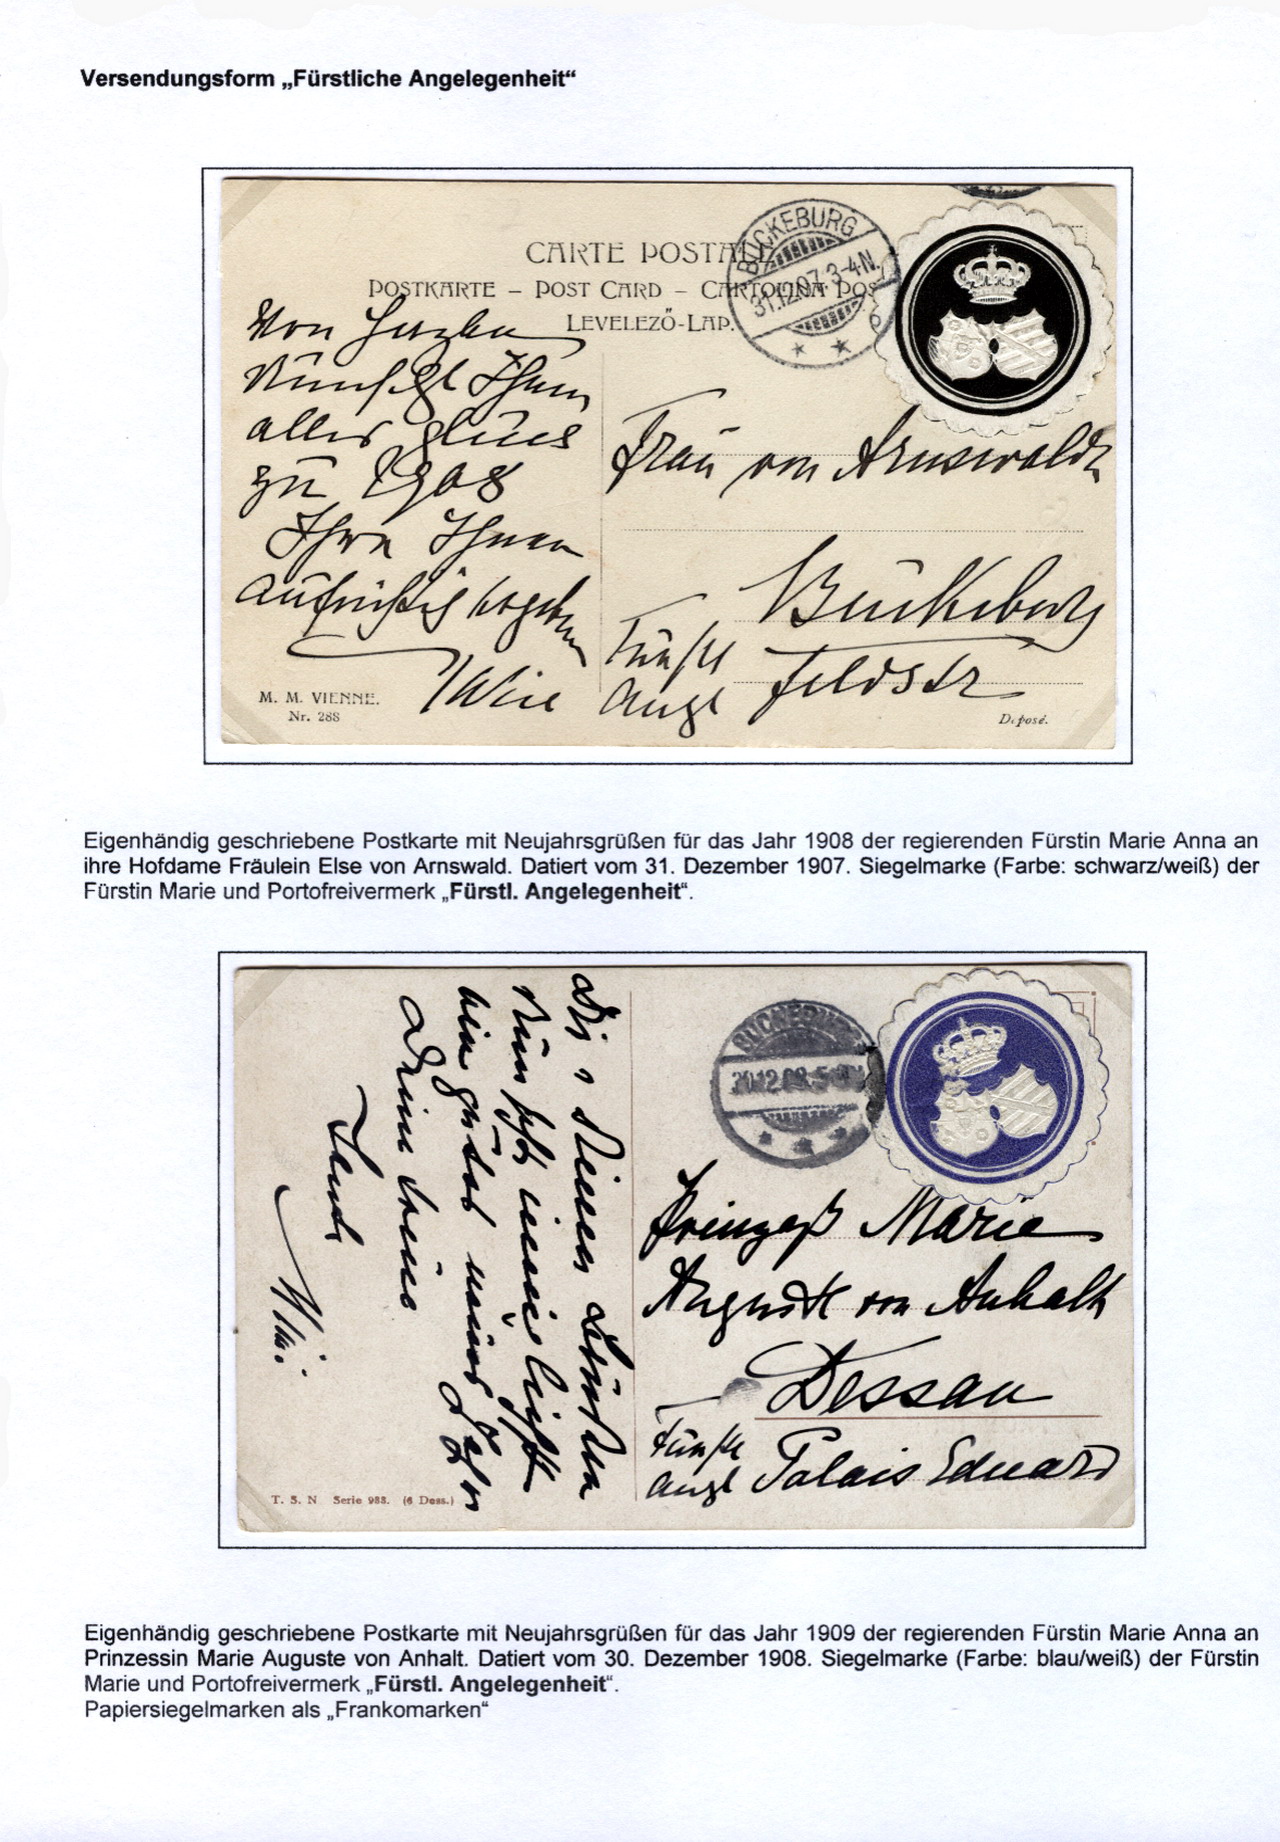 Versendungsform „Fürstliche Angelegenheit“
BÜCKEBURG
31.12.07. 3-4N.
CARTE POSTALE
POSTKARTE – POST CARD – CARTOLINA POS
LEVELEZŐ-LAP.
Von Herzen
Wünscht Ihnen
alles Glück
zu 1908
Ihre Ihnen
aufrichtig ergebene
Frau von Arnswaldt
Bückeburg
Fürstl
Angl
Feldstr
M. M. VIENNE.
Nr. 288
Deposé.
Eigenhändig geschriebene Postkarte mit Neujahrsgrüßen für das Jahr 1908 der regierenden Fürstin Marie Anna an
ihre Hofdame Fräulein Else von Arnswald. Datiert vom 31. Dezember 1907. Siegelmarke (Farbe: schwarz/weiß) der
Fürstin Marie und Portofreivermerk „Fürstl. Angelegenheit“.
BÜCKEBURG
12.08.5
wünscht
Deine treue
Tante
Prinzeß Marie
Auguste von Anhalt
Dessau
Fürstl
Angl
Palais Eduard
T. S. N Serie 988. (6 Dess.)
Eigenhändig geschriebene Postkarte mit Neujahrsgrüßen für das Jahr 1909 der regierenden Fürstin Marie Anna an
Prinzessin Marie Auguste von Anhalt. Datiert vom 30. Dezember 1908. Siegelmarke (Farbe: blau/weiß) der Fürstin
Marie und Portofreivermerk „Fürstl. Angelegenheit“.
Papiersiegelmarken als „Frankomarken“